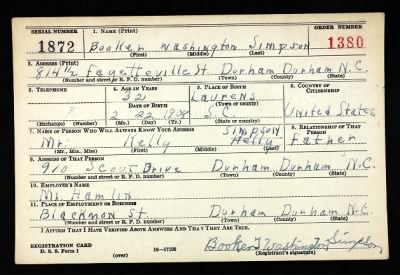 SERIAL NUMBER 1. NAME (Print) ORDER NUMBER
1872 Booker Washington Simpson 1380
(First) (Middle) (Last)
2. ADDRESS (Print)
814 1/2 Fayetteville St Durham Durham N.C.
(Number and street or R. F. D. number) (Town) (County) (State)
3. TELEPHONE 4. AGE IN YEARS 5. PLACE OF BIRTH 6. COUNTRY OF CITIZENSHIP
32 Laurens
DATE OF BIRTH (Town or county)
2 22 1908 S.C. United States
(Exchange) (Number) (Mo.) (Day) (Yr.) (State or country)
7. NAME OF PERSON WHO WILL ALWAYS KNOW YOUR ADDRESS 8. RELATIONSHIP OF THAT PERSON
Simpson
Mr. Kelly Father
(Mr., Mrs., Miss) (First) (Middle) (Last)
9. ADDRESS OF THAT PERSON
910 Scout Drive Durham Durham N.C.
(Number and street or R. F. D. number) (Town) (County) (State)
10. EMPLOYER'S NAME
Mr. Hamlin
11. PLACE OF EMPLOYMENT OR BUSINESS
Blackmon St. Durham Durham N.C.
(Number and street or R. F. D. number) (Town) (County) (State)
I AFFIRM THAT I HAVE VERIFIED ABOVE ANSWERS AND THAT THEY ARE TRUE.
REGISTRATION CARD Booker Washington Simpson
D. S. S. Form 1 (over) 16—17105 (Registrant's signature)